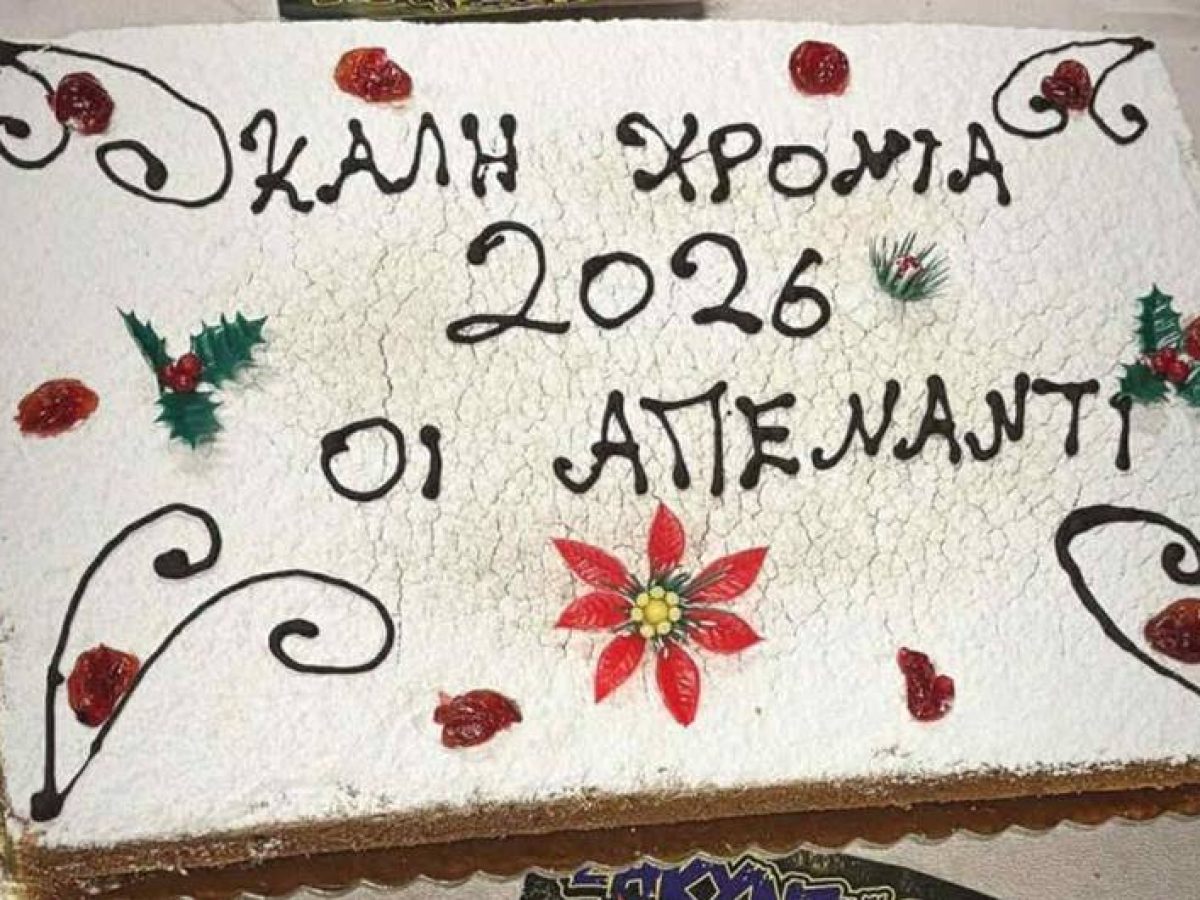 ΚΑΛΗ ΧΡΟΝΙΑ
2026
ΟΙ ΑΠΕΝΑΝΤΙ